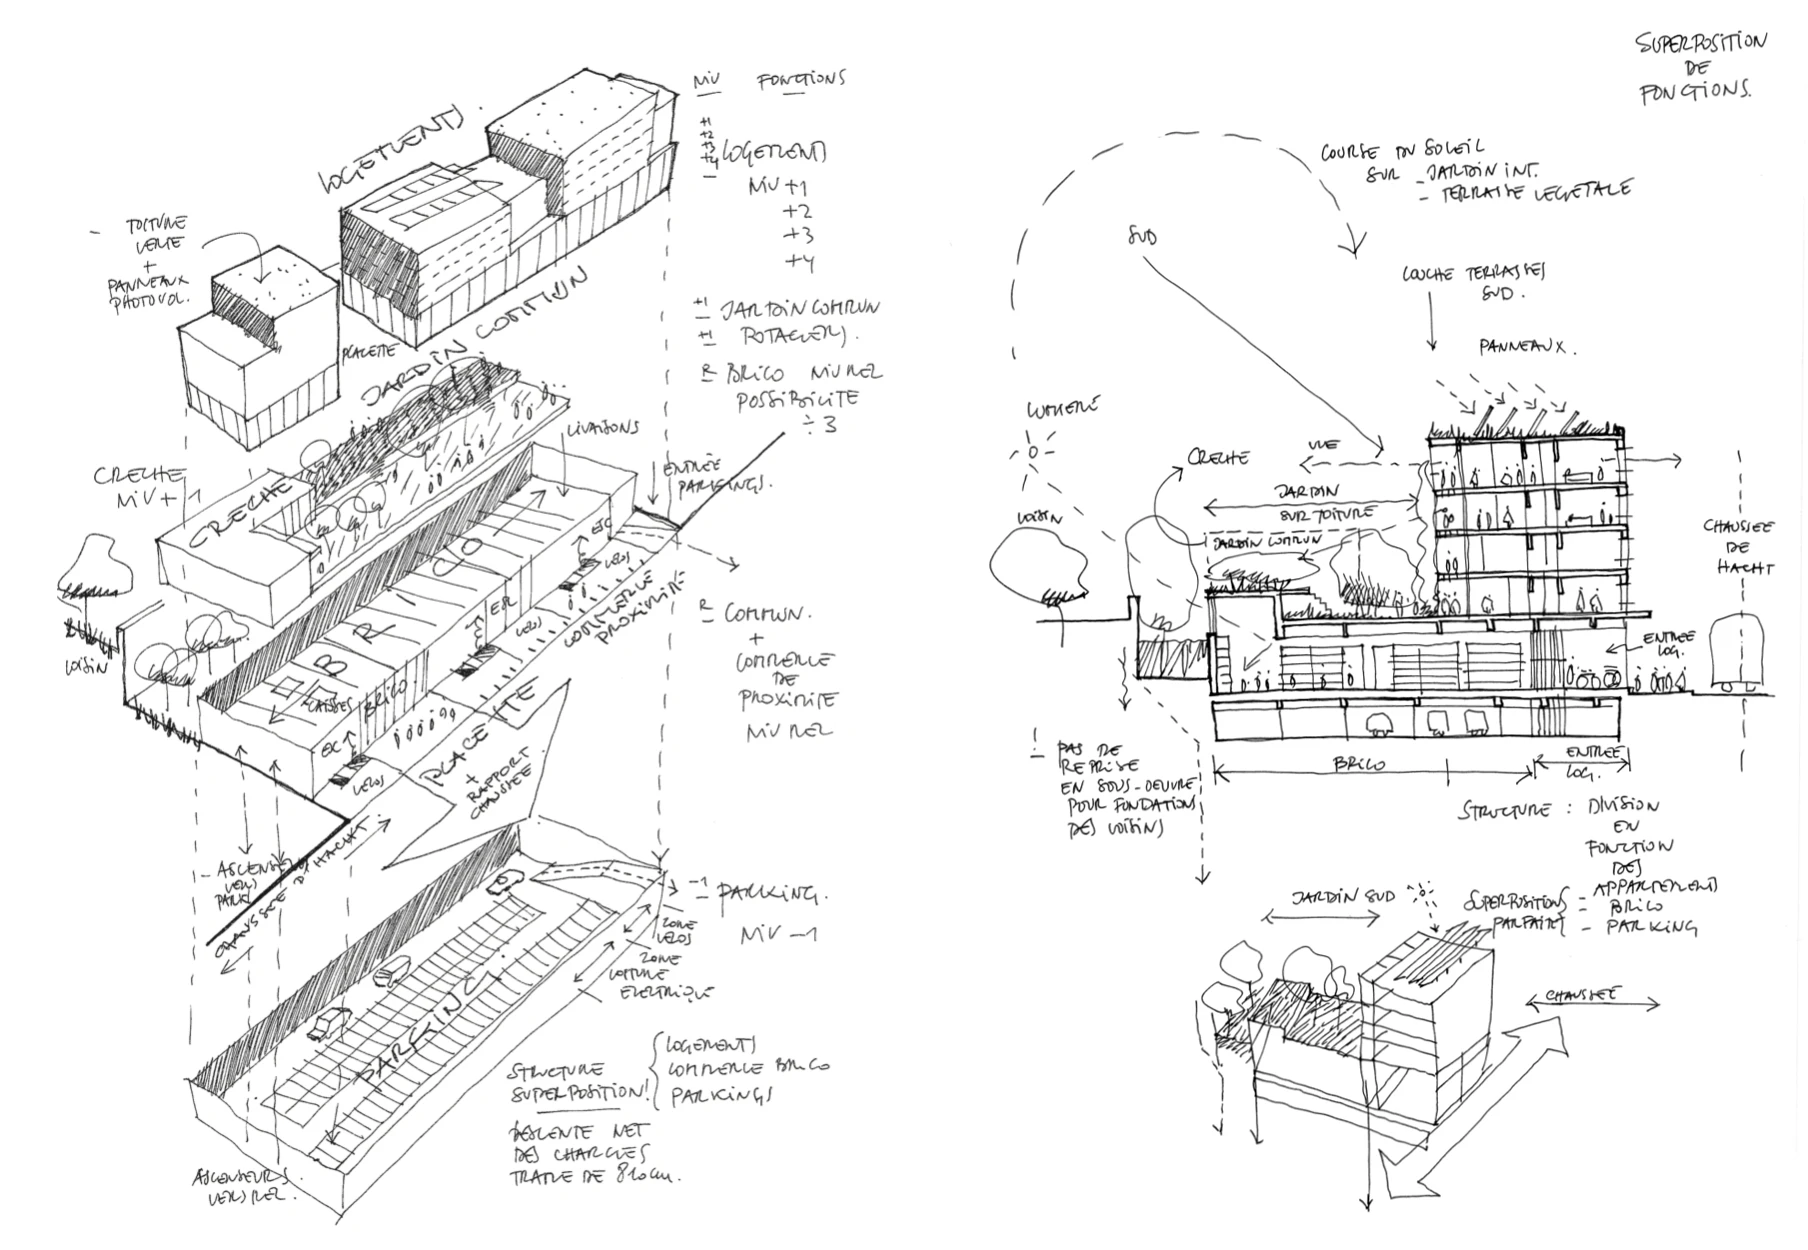 SUPERPOSITION
DE
FONCTIONS.
NIV FONCTIONS
+1
+2
+3
+4
LOGEMENTS
NIV +1
+2
+3
+4
+1 JARDIN COMMUN
+1 POTAGERS.
R BRICO NIV REZ
POSSIBILITE
÷3
LOGEMENTS.
TOITURE
VERTE
+
PANNEAUX
PHOTOVOL.
PLACETTE
JARDIN COMMUN
CRECHE
NIV +1
CRECHE
LIVAISONS
ENTRÉE
PARKINGS.
VOISIN
BRICO
CAISSES
BRICO
ESC
ESC
VELOS
VELOS
VELOS
COMMERCE
PROXIMITÉ
PLACETTE
+
RAPPORT
CHAUSSEE
R COMMUN.
+
COMMERCE
DE
PROXIMITE
NIV REZ
ASCENSEURS
VERS
PARK
CHAUSSEE D'HACHT.
-1 PARKING.
NIV -1
ZONE
VELOS
ZONE
VOITURE
ELECTRIQUE
PARKING.
ASCENSEURS
VERS REZ.
STRUCTURE
SUPERPOSITION!
LOGEMENTS
COMMERCE BRICO
PARKINGS
DESCENTE NET
DES CHARGES
TRAME DE 810cm.
COURSE DU SOLEIL
SUR - JARDIN INT.
- TERRASSE VEGETALE
SUD
COUCHE TERRASSES
SUD.
PANNEAUX.
LUMIERE
CRECHE
VUE
VOISIN
JARDIN
SUR TOITURE
JARDIN COMMUN
CHAUSSEE
DE
HACHT
ENTREE
LOG.
! PAS DE
REPRISE
EN SOUS-OEUVRE
POUR FONDATIONS
DES VOISINS
BRICO
ENTREE
LOG.
STRUCTURE : DIVISION
EN
FONCTION
DES
SUPERPOSITIONS - APPARTEMENTS
PARFAITES - BRICO
- PARKING
JARDIN SUD
CHAUSSEE